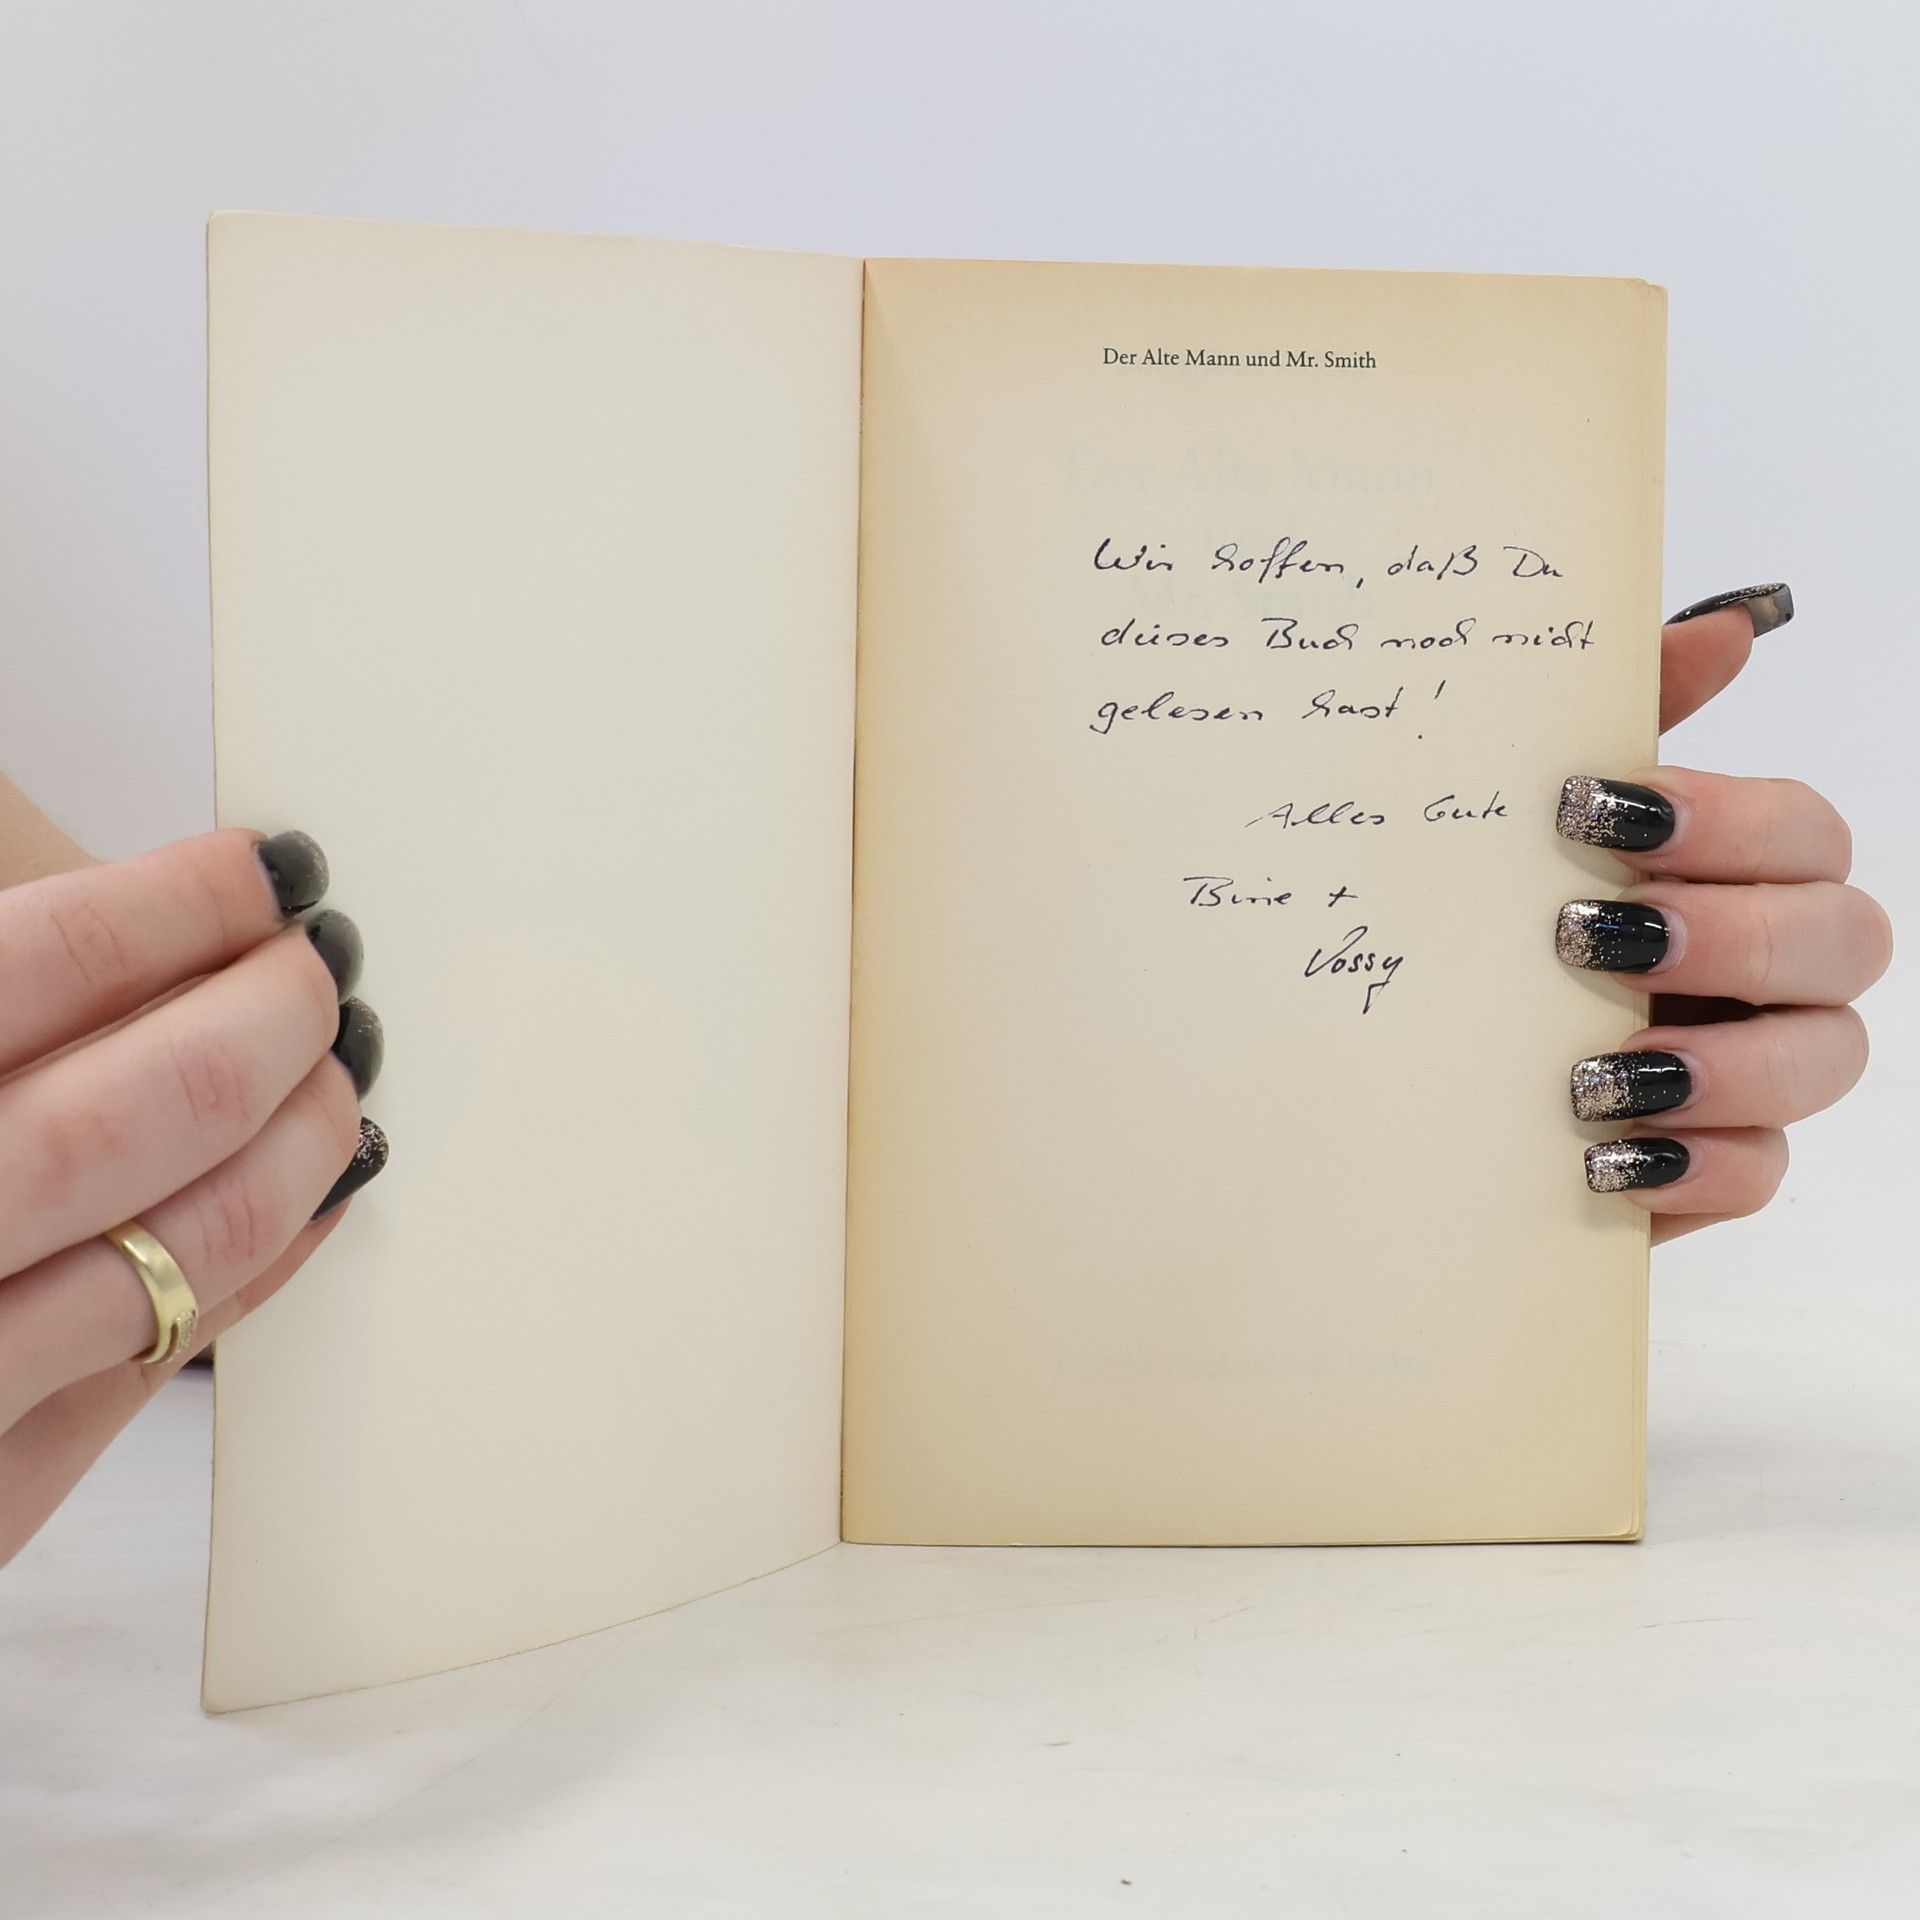 Der Alte Mann und Mr. Smith
Wir hoffen, daß Du
dieses Buch noch nicht
gelesen hast!
Alles Gute
Bine +
Vossy